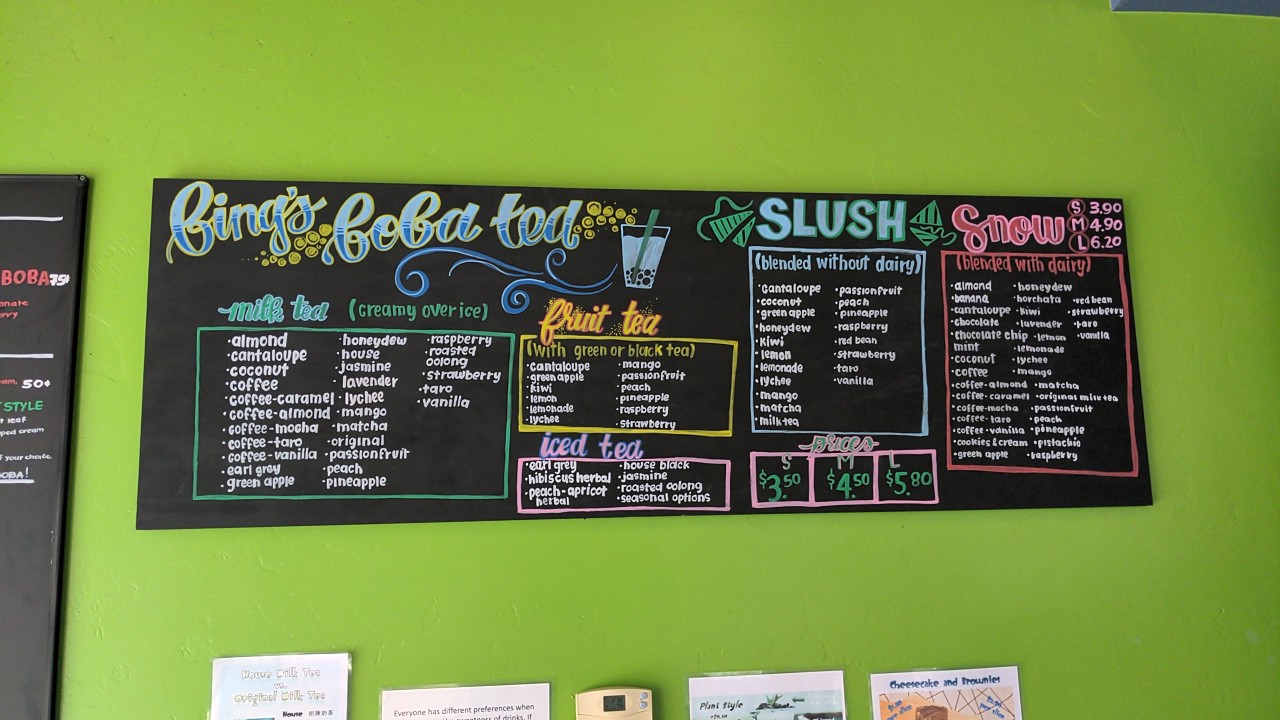 BOBA 75¢
50¢
STYLE
leaf
cream
f your choice
BOBA!
Bing's Boba tea
milk tea (creamy over ice)
·almond
·cantaloupe
·coconut
·coffee
·coffee-caramel
·coffee-almond
·coffee-mocha
·coffee-taro
·coffee-vanilla
·earl grey
·green apple
·honeydew
·house
·jasmine
·lavender
·lychee
·mango
·matcha
·original
·passionfruit
·peach
·pineapple
·raspberry
·roasted
oolong
·strawberry
·taro
·vanilla
fruit tea
(with green or black tea)
·cantaloupe
·green apple
·kiwi
·lemon
·lemonade
·lychee
·mango
·passionfruit
·peach
·pineapple
·raspberry
·strawberry
iced tea
·earl grey
·hibiscus herbal
·peach-apricot
herbal
·house black
·jasmine
·roasted oolong
·seasonal options
SLUSH
(blended without dairy)
·cantaloupe
·coconut
·green apple
·honeydew
·kiwi
·lemon
·lemonade
·lychee
·mango
·matcha
·milk tea
·passionfruit
·peach
·pineapple
·raspberry
·red bean
·strawberry
·taro
·vanilla
prices
S M L
$3.50 $4.50 $5.80
Snow
S 3.90
M 4.90
L 6.20
(blended with dairy)
·almond
·banana
·cantaloupe
·chocolate
·chocolate chip
mint
·coconut
·coffee
·coffee-almond
·coffee-caramel
·coffee-mocha
·coffee-taro
·coffee-vanilla
·cookies & cream
·green apple
·honeydew
·horchata
·kiwi
·lavender
·lemon
·lemonade
·lychee
·mango
·matcha
·original milk tea
·passionfruit
·peach
·pineapple
·pistachio
·raspberry
·red bean
·strawberry
·taro
·vanilla
House Milk Tea
vs.
Original Milk Tea
House 招牌奶茶
Everyone has different preferences when
sweetness of drinks. If
Plant Style
Cheesecake and Brownies